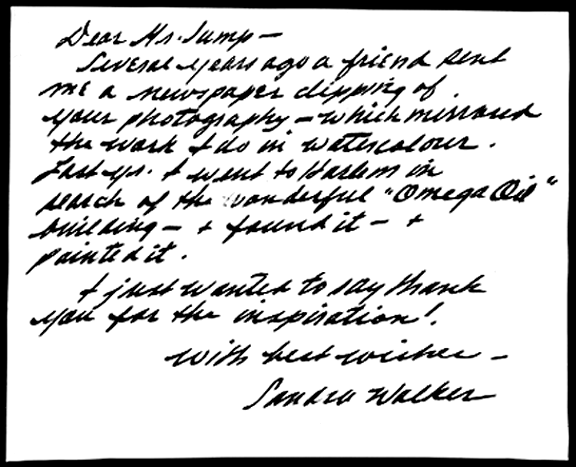 Dear Mr. Jump —
Several years ago a friend sent
me a newspaper clipping of
your photography — which mirrored
the work I do in watercolour.
Last yr. I went to Harlem in
search of the wonderful "Omega Oil"
building — + found it — +
painted it.
I just wanted to say thank
you for the inspiration!
With best wishes —
Sandra Walker